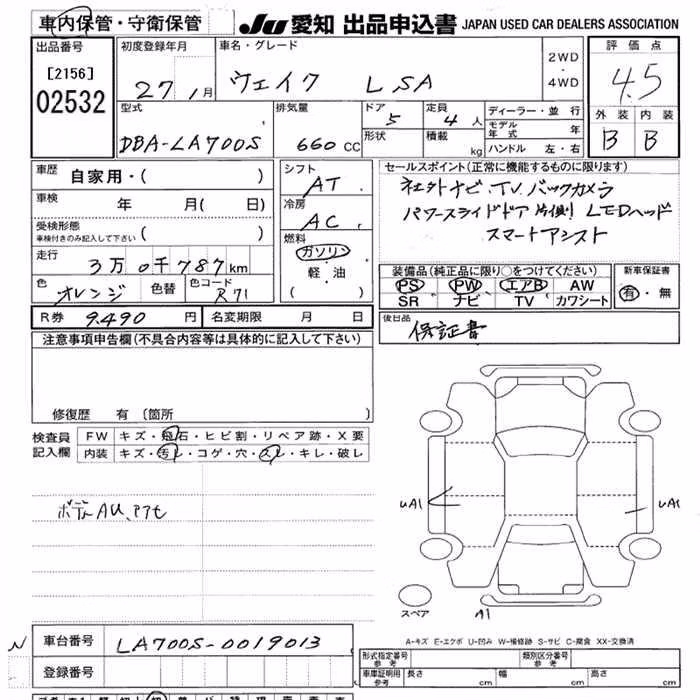 車内保管・守衛保管 JU 愛知 出品申込書 JAPAN USED CAR DEALERS ASSOCIATION
出品番号 初度登録年月 車名・グレード 評価点
[2156] 27 1月 ウェイク LSA 2WD・4WD 4.5
02532
型式 排気量 ドア 定員 ディーラー・並行 外装 内装
DBA-LA700S 660cc 5 4人 モデル年式 年 B B
形状 積載 kg ハンドル 左・右
車歴 自家用・( ) シフト AT セールスポイント(正常に機能するものに限ります)
車検 年 月( 日) 冷房 AC 社外ナビ.TV.バックカメラ
受検形態 車検付きのみ記入して下さい ( ) パワースライドドア 片側 LEDヘッド
走行 3万0千787km 燃料 ガソリン スマートアシスト
軽・油
( )
色 オレンジ 色替 色コード R71
装備品(純正品に限り○をつけてください) 新車保証書
PS PW エアB AW 有・無
SR ナビ TV カワシート
R券 9,490円 名変期限 月 日 後日品
保証書
注意事項申告欄(不具合内容等は具体的に記入して下さい)
修復歴 有 〔箇所
検査員記入欄 FW キズ・飛石・ヒビ割・リペア跡・X要
内装 キズ・汚レ・コゲ・穴・スレ・キレ・破レ
UA1 UA1
スペア A1
N 車台番号 LA700S-0019013
A-キズ E-エクボ U-凹み W-補修跡 S-サビ C-腐食 XX-交換済
登録番号 形式指定番号 参考 類別区分番号 参考
車庫証明用 参考 長さ cm 幅 cm 高さ cm